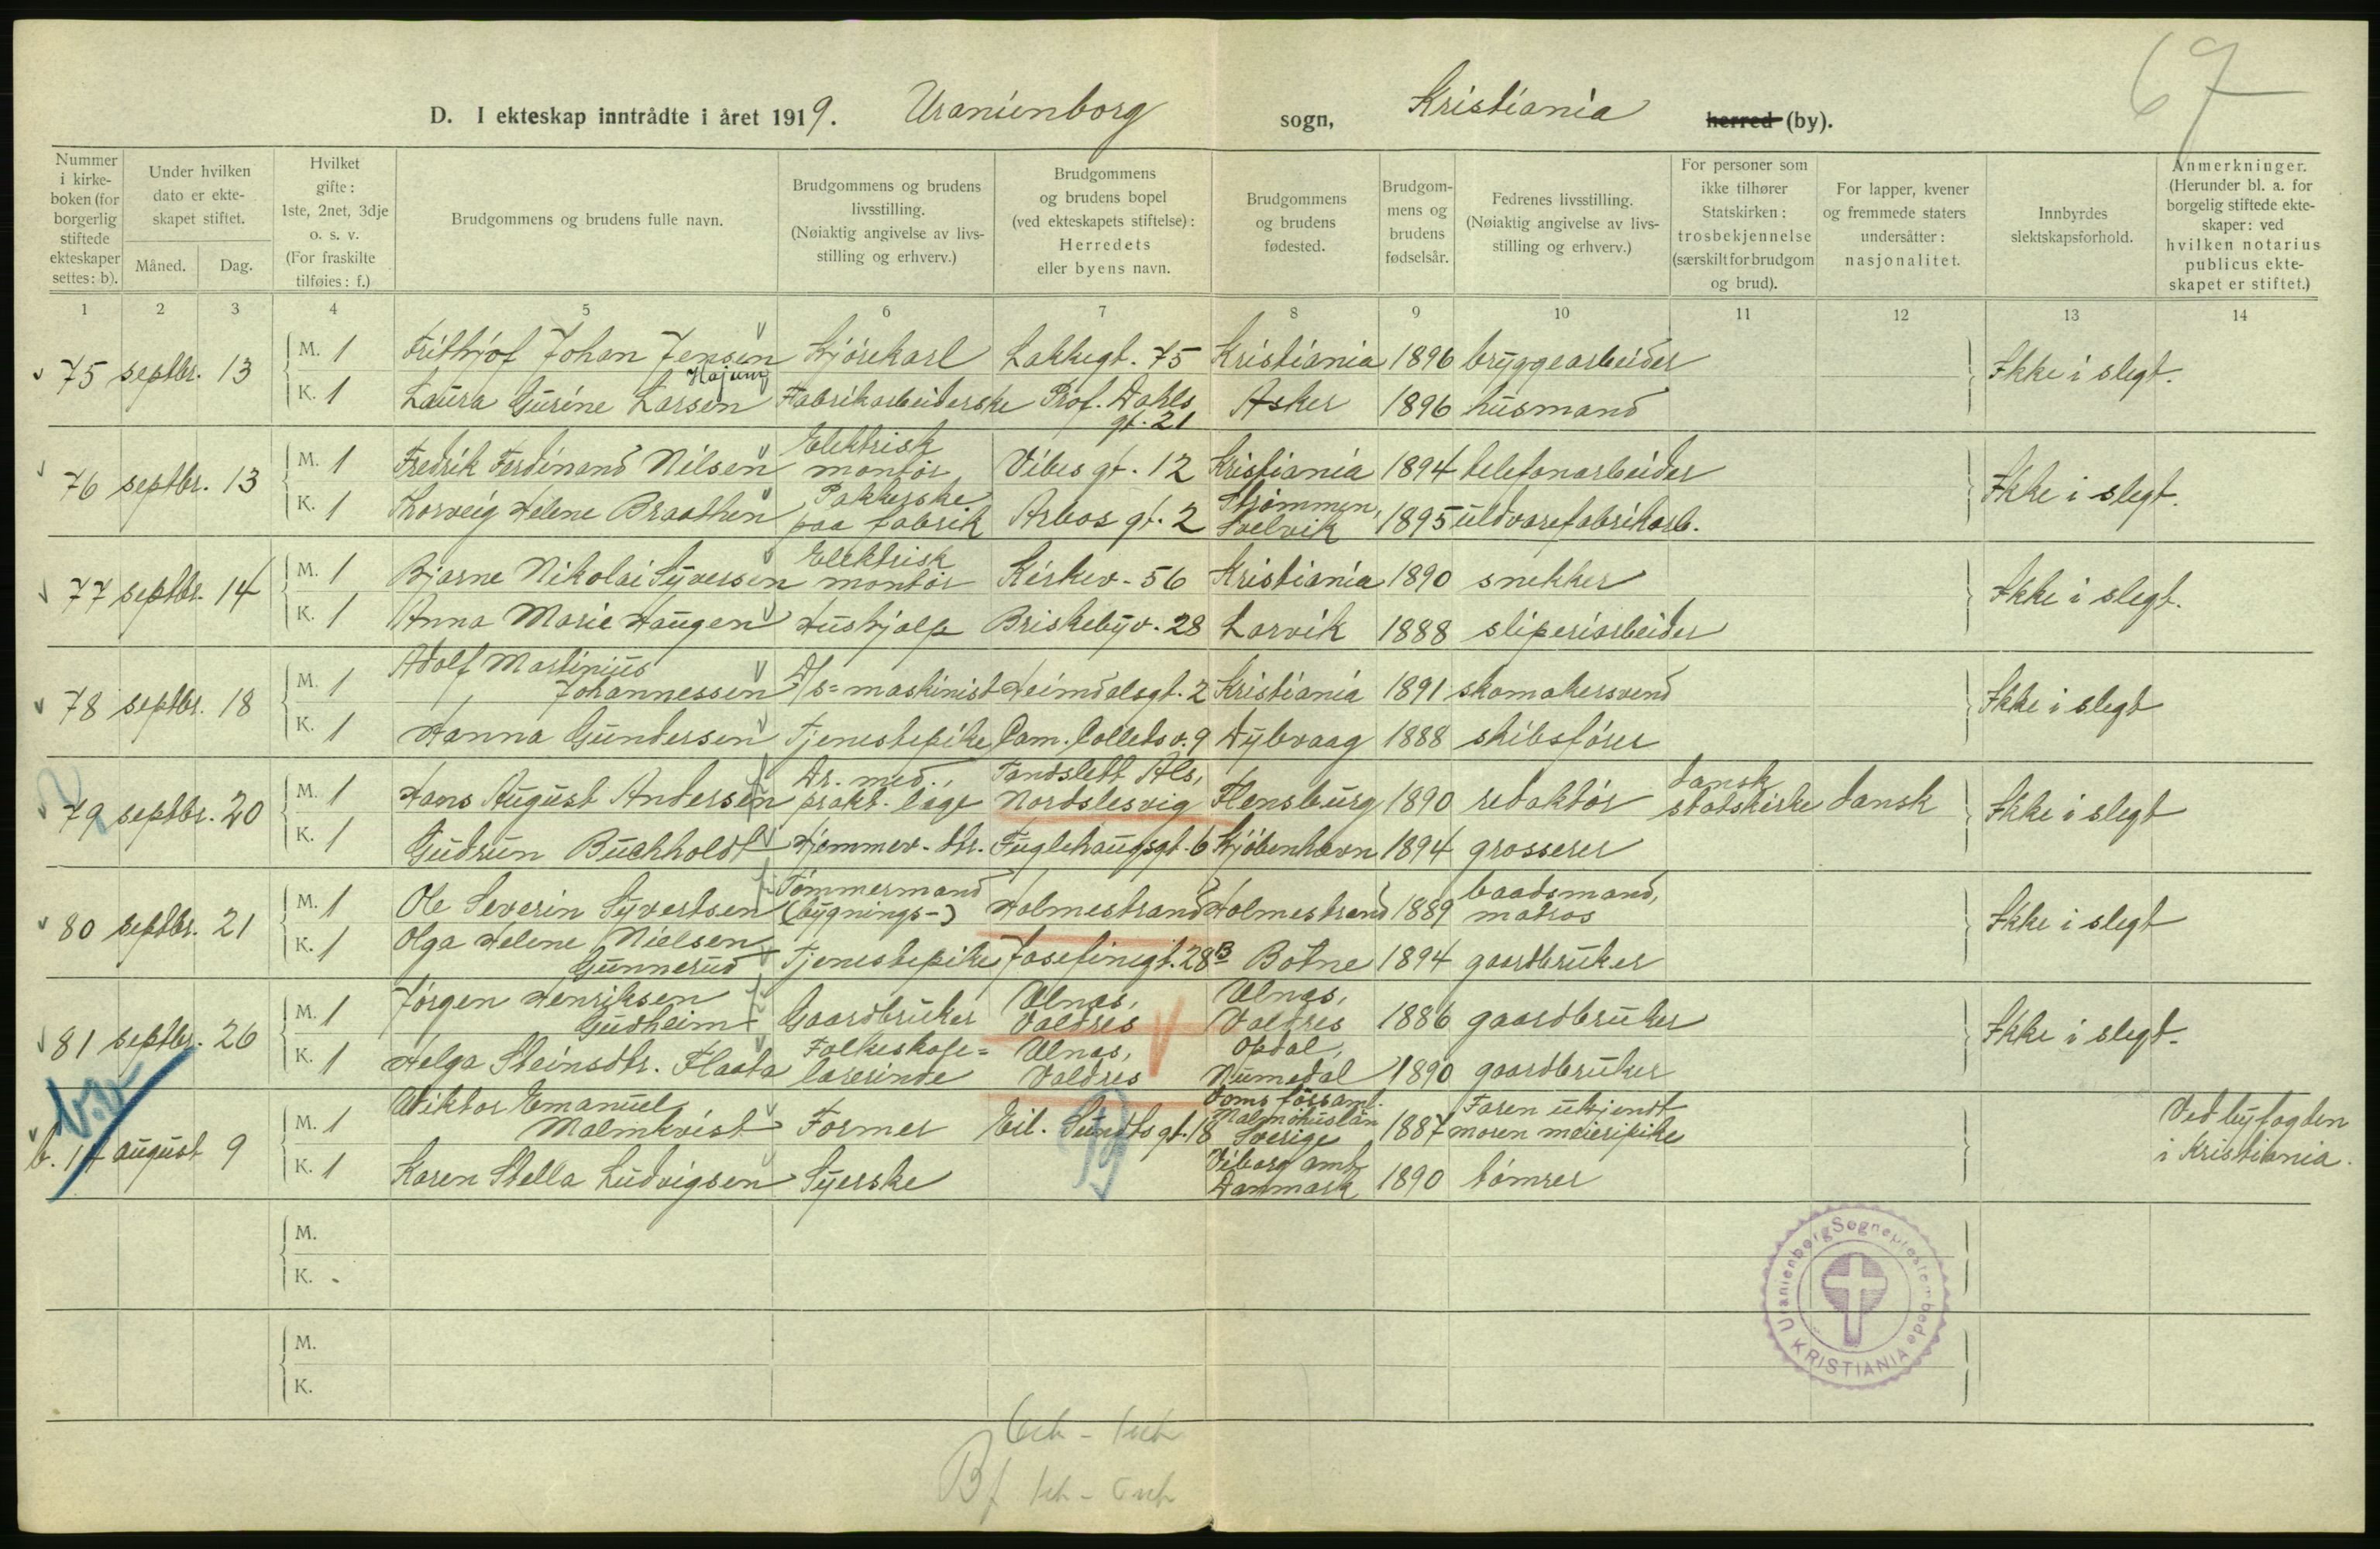 67
D. I ekteskap inntrådte i året 1919. Uranienborg sogn, Kristiania herred (by).
Nummer i kirke-boken (for borgerlig stiftede ekteskaper settes: b).
Under hvilken dato er ekte-skapet stiftet.
Måned.
Dag.
Hvilket gifte: 1ste, 2net, 3dje o. s. v. (For fraskilte tilføies: f.)
Brudgommens og brudens fulle navn.
Brudgommens og brudens livsstilling. (Nøiaktig angivelse av livs-stilling og erhverv.)
Brudgommens og brudens bopel (ved ekteskapets stiftelse): Herredets eller byens navn.
Brudgommens og brudens fødested.
Brudgom-mens og brudens fødselsår.
Fedrenes livsstilling. (Nøiaktig angivelse av livs-stilling og erhverv.)
For personer som ikke tilhører Statskirken: trosbekjennelse (særskilt for brudgom og brud).
For lapper, kvener og fremmede staters undersåtter: nasjonalitet.
Innbyrdes slektskapsforhold.
Anmerkninger. (Herunder bl. a. for borgelig stiftede ekte-skaper: ved hvilken notarius publicus ekte-skapet er stiftet.)
1 2 3 4 5 6 7 8 9 10 11 12 13 14
75 septbr. 13 M. 1 Frithjof Johan Jensen Kjørekarl Lakkegt. 75 Kristiania 1896 bryggearbeider Ikke i slegt.
K. 1 Laura Gurine Larsen Fabrikarbeiderske Prof. Dahls gt. 21 Asker 1896 husmand
76 septbr. 13 M. 1 Fredrik Ferdinand Nilsen Elektrisk montør Vibes gt. 12 Kristiania 1894 telefonarbeider Ikke i slegt.
K. 1 Thorveig Helene Braathen Pakkerske paa fabrik Arbos gt. 2 Strømmen, Svelvik 1895 uldvarefabrikarb.
77 septbr. 14 M. 1 Bjarne Nikolai Syversen Elektrisk montør Kirkev. 56 Kristiania 1890 snekker Ikke i slegt.
K. 1 Anna Marie Haugen Hushjælp Briskebyv. 28 Larvik 1888 sliperiarbeider
78 septbr. 18 M. 1 Adolf Martinius Johannessen D/s=maskinist Heimdalsgt. 2 Kristiania 1891 skomakersvend Ikke i slegt
K. 1 Hanna Gundersen Tjenestepike Cam. Colletts v. 9 Dybvaag 1888 skibsfører
79 septbr. 20 M. 1 Hans August Andersen Dr. med., prakt. læge Tandslett Als, Nordslesvig Flensburg 1890 redaktør dansk statskirke dansk Ikke i slegt
K. 1 Gudrun Buchholdt Hjemmev. dtr. Fuglehaugsgt. 6 Kjøbenhavn 1894 grosserer
80 septbr. 21 M. 1 Ole Severin Syvertsen Tømmermand (bygnings-) Holmestrand Holmestrand 1889 baadsmand, matros Ikke i slegt
K. 1 Olga Helene Nielsen Gunnerud Tjenestepike Josefinegt. 28B Botne 1894 gaardbruker
81 septbr. 26 M. 1 Jørgen Henriksen Gudheim Gaardbruker Ulnæs, Valdres Ulnæs, Valdres 1886 gaardbruker Ikke i slegt.
K. 1 Helga Steinsdtr. Flaata Folkeskole=lærerinde Ulnæs, Valdres Opdal, Numedal 1890 gaardbruker
august 9 M. 1 Viktor Emanuel Malmkvist Former Eil. Sundts gt. 18 Malmöhuslän Sverige 1887 Faren ukjendt moren meieripike Ved byfogden i Kristiania.
K. 1 Karen Stella Ludvigsen Syerske Viborg amt Danmark 1890 tømrer
M.
K.
M.
K.
Uranienborg Sogneprestembede
KRISTIANIA